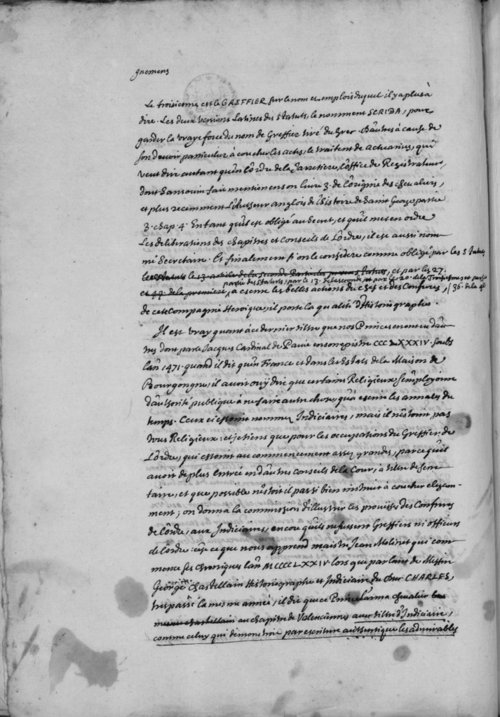 gnemens
Le troisieme est le GREFFIER sur le nom et emplois duquel il y a plus à
dire. Les deux versions Latines des Statuts, le nomment SCRIBA, pour
garder la vraye force du nom de Greffier tiré du Grec. D'autres à cause de
son devoir particulier à coucher les actes, le traittent de Actuarius, qui
veut dire autant qu'en l'ordre de la Jarretiere, l'office de Registrateur
dont Sansovin fait mention en son livre 3. de l'origine des Chevaliers,
et plus recemment l'Autheur anglois de l'histoire de Saint George partie
3. chap. 4. En tant qu'il est obligé au secret, et qu'il met en ordre
Les deliberations des chapitres et Conseils de l'ordre, il est aussi nom
mé Secretaire. Et finalement si on le considere comme obligé par les
et par les 27.
à escrire les belles actions du chef et des Confreres,
de cette Compagnie Heroique, il porte la qualité d'Historiographe.
Il est vray quant à ce dernier tiltre que nos Princes en ont d'au
tres dont parle Jacques Cardinal de Pavie en son epistre CCCLXXXIV. soubs
l'an 1471. quand il dit qu'en France et dans les Estats de la Maison de
Bourgongne, il avoit ouy dire que certains Religieux s'employoient
d'authorité publique à ne faire autre chose, qu'escrire les annales du
temps. Ceux cy estoient nommez Indiciaires; mais il n'estoient pas
tous Religieux: et je tiens que pour les occupations du Greffier de
l'ordre, qui estoient au commencement assez grandes, parce qu'il
avoit de plus l'entrée en d'autres Conseils de la Cour, à tiltre de Secre
taire, et que possible n'estoit il pas si bien instruit à coucher elegam
ment; on donna la commission d'illustrer les proüesses des Confreres
de l'ordre, aux Indiciaires, encor qu'ils ne fussent Greffiers ni officiers
de l'ordre: c'est ce que nous apprend maistre Jean Molinet qui com
mence ses chroniques l'an MCCCCLXXIV lors que parlant de Messire
George Chastellain Historiographe et Indiciaire du Duc CHARLES,
trespassé la mesme année, il dit que ce Prince l'arma chevalier
au chapitre de Valenciennes avec tiltre d'Indiciaire,
comme celuy qui demonstroit par escriture authentique les admirables